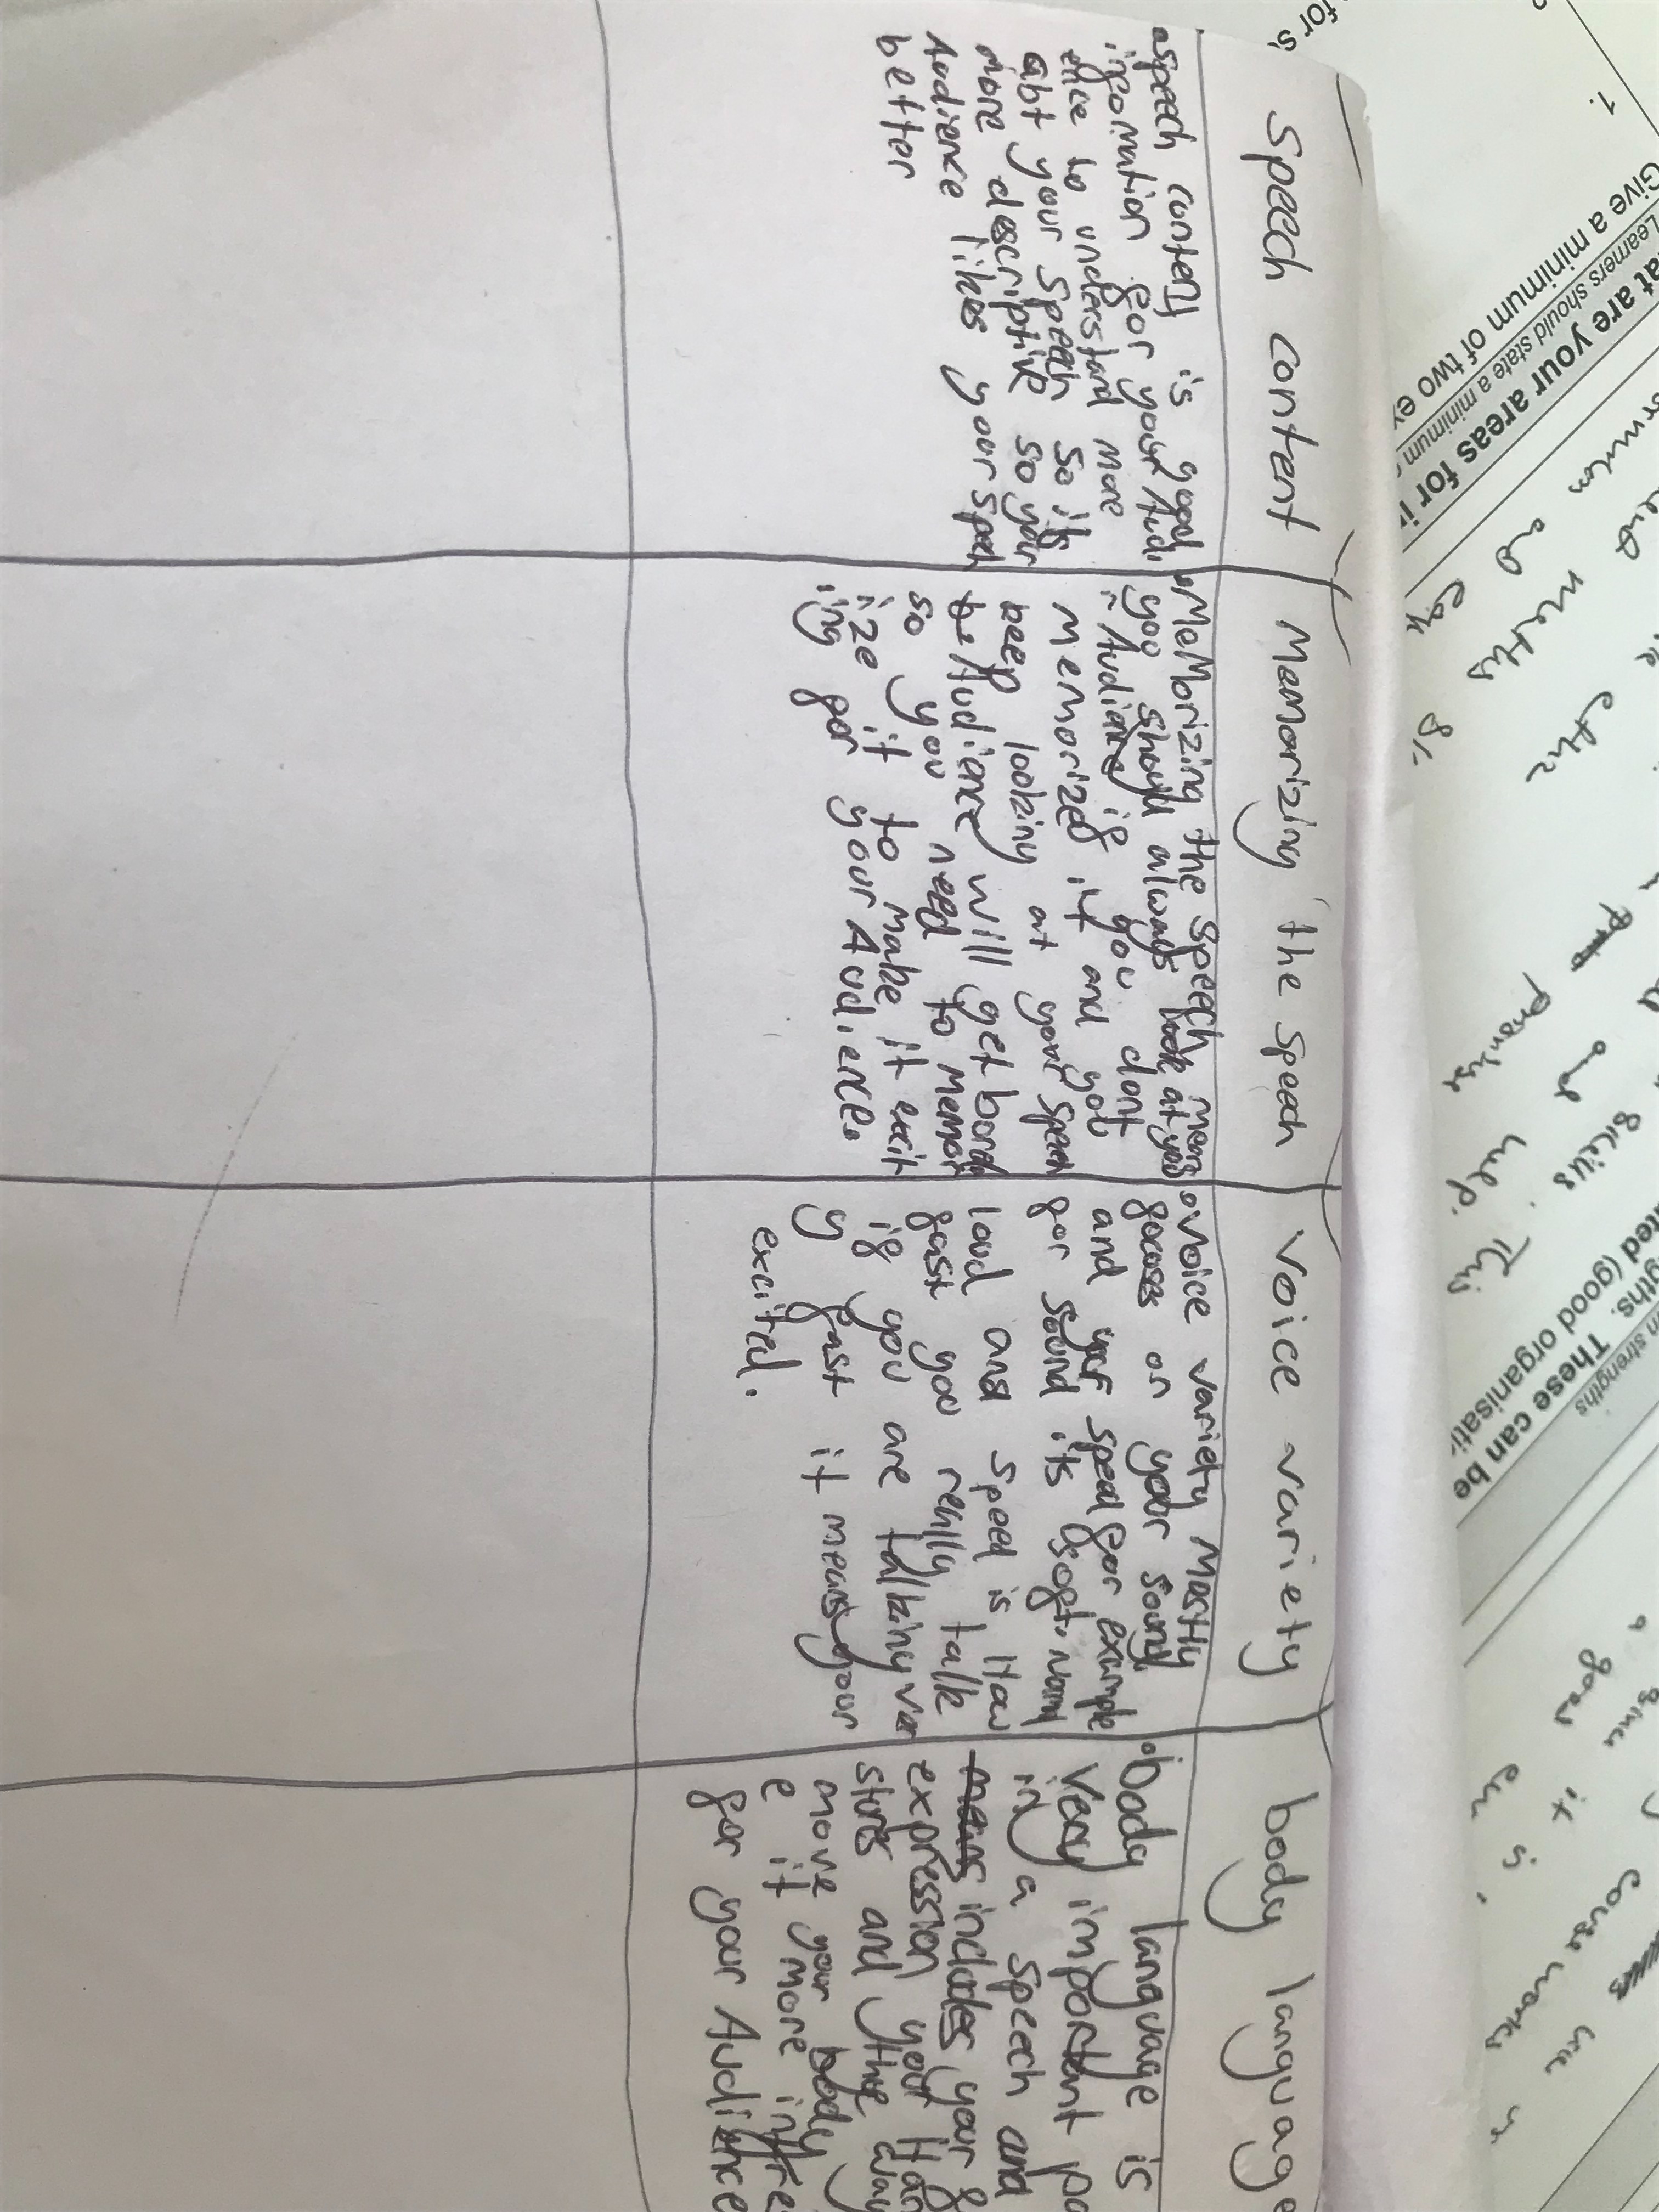 Speech content
speech content is good
information for your Audi
ence to understand more
abt your speech so its
more descriptive so your
Audience likes your speech
better
Memorizing the speech
MeMorizing the speech means
you should always look at you
r Audiance if you dont
memorized it and you
keep looking at your speech
Audience will get bored
so you need to memor
ize it to make it excit
ing for your Audience.
Voice variety
Voice variety Mostly
focuses on your sound
and your speed for example
for sound its soft, normal
loud and speed is How
fast you really talk
if you are talking ver
y fast it means your
excited.
body language
body language is
Very important pa
in a speech and
means includes your f
expression your Han
stures and the way
move your body
e it more intre
for your Audience
for s,
1.
at are your areas for i
Learners should state a minimum
Give a minimum of two ex
maths
extra
Skills
and
help.
This
n strengths
gths. These can be
ted (good organisati
a goal
it is,
course works